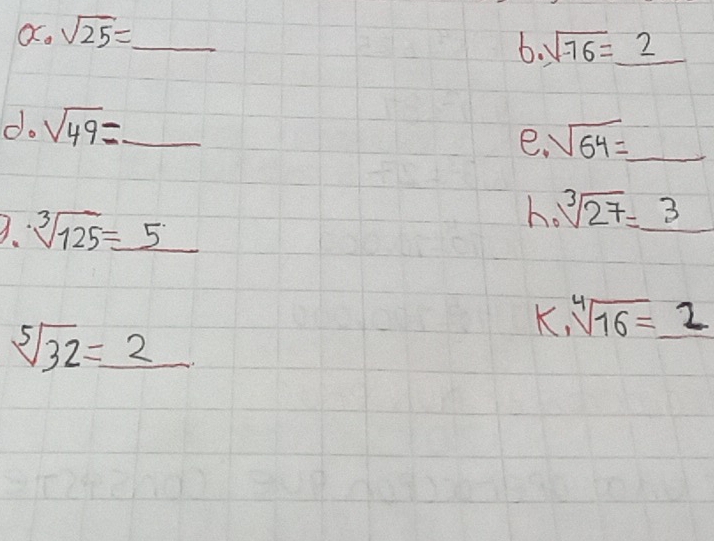 a. √25=____ b. √16= 2
d. √49=____ e. √64=____
g. ∛125= 5 h. ∛27= 3
⁵√32= 2 K. ∜16= 2